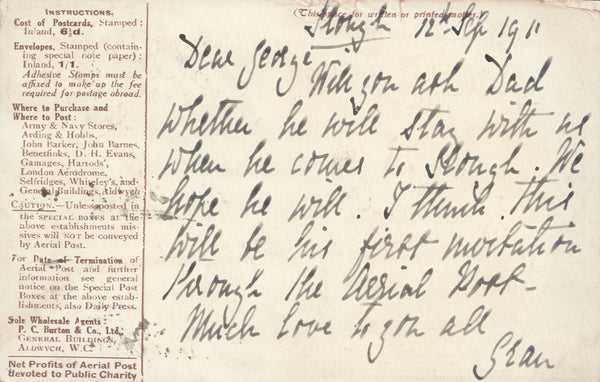 INSTRUCTIONS.
Cost of Postcards, Stamped:
Inland, 6½d.
Envelopes, Stamped (contain-
ing special note paper):
Inland, 1/1.
Adhesive Stamps must be
affixed to make up the fee
required for postage abroad.
Where to Purchase and
Where to Post:
Army & Navy Stores,
Arding & Hobbs,
John Barker, John Barnes,
Benetfinks, D. H. Evans,
Gamages, Harrods',
London Aerodrome,
Selfridges, Whiteley's, and
General Buildings, Aldwych
CAUTION.—Unless posted in
the SPECIAL boxes at the
above establishments mis-
sives will NOT be conveyed
by Aerial Post.
For Date of Termination of
Aerial Post and further
information see general
notice on the Special Post
Boxes at the above estab-
lishments, also Daily Press.
Sole Wholesale Agents:
P. C. Burton & Co., Ltd.
GENERAL BUILDINGS,
ALDWYCH, W.C.
Net Profits of Aerial Post
devoted to Public Charity
(This space for written or printed matter.)
Slough 12th Sep 1911
Dear George
Will you ask Dad
whether he will stay with us
when he comes to Slough. We
hope he will. I think this
will be his first invitation
through the Aerial Post—
Much love to you all
Gran